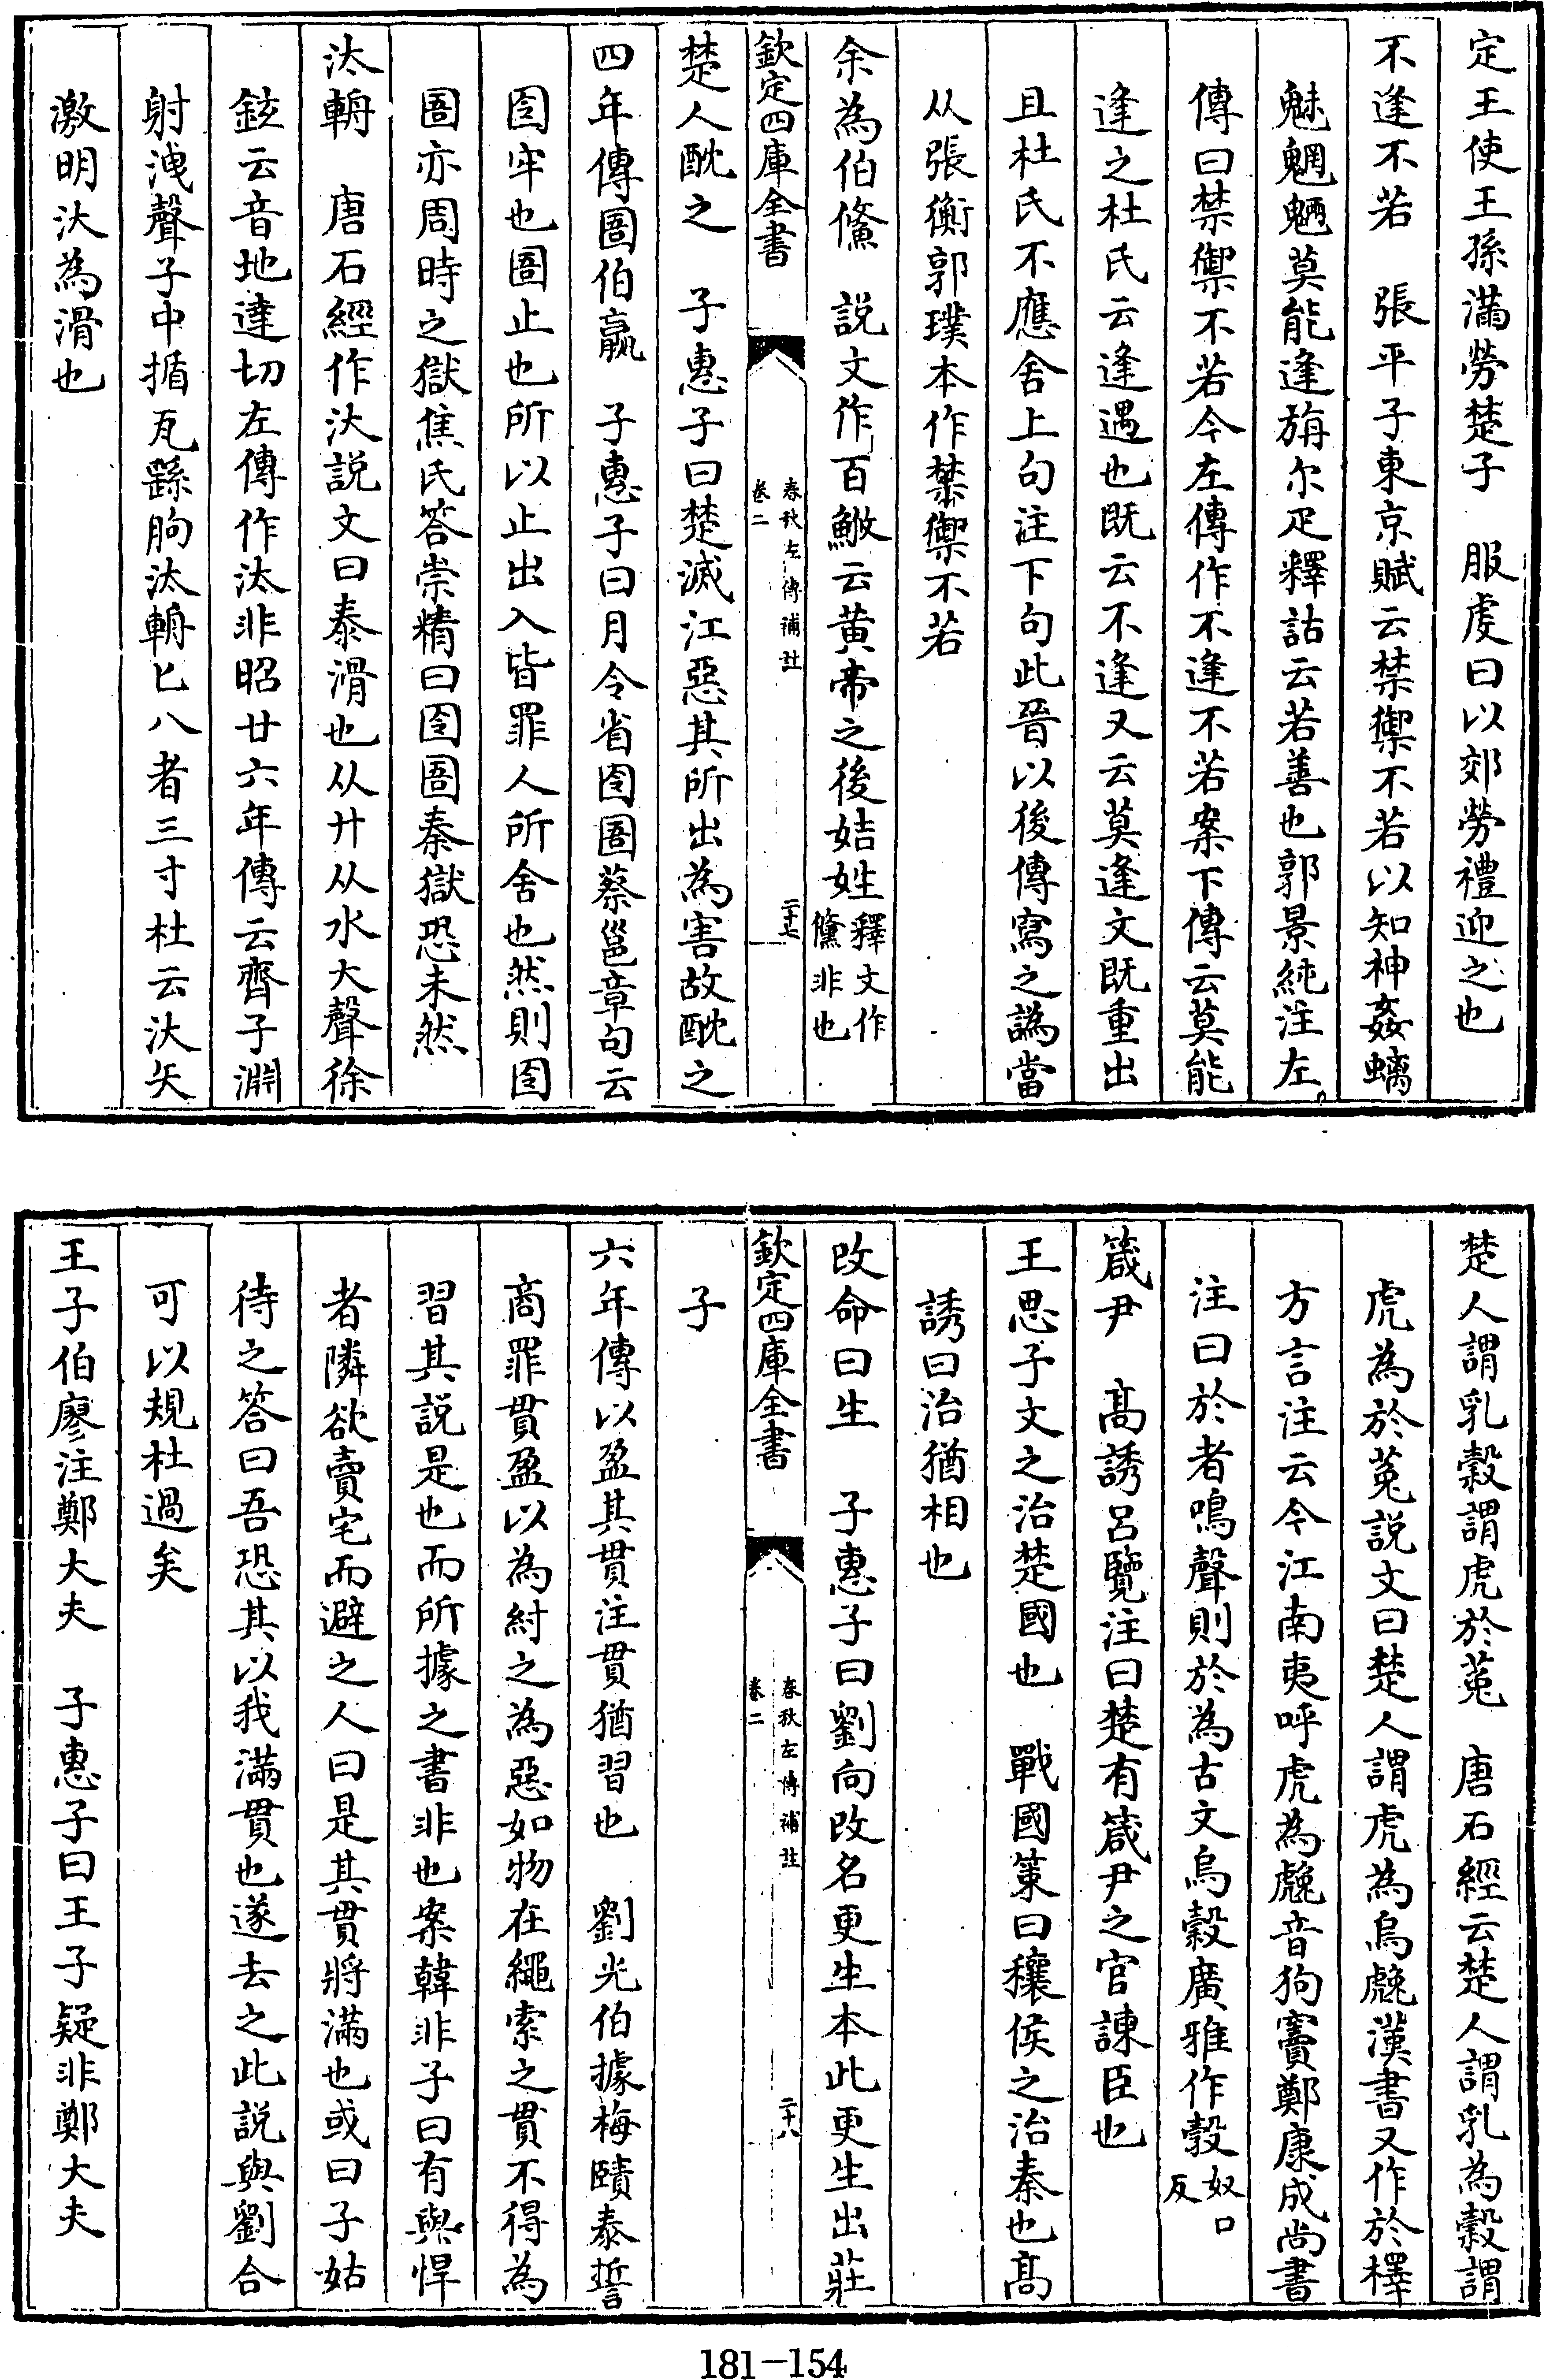 定王使王孫滿勞楚子　服虔曰以郊勞禮迎之也
不逢不若　張平子東京賦云禁禦不若以知神姦螭
魅魍魎莫能逢旃尔疋釋詁云若善也郭景純注左
傳曰禁禦不若今左傳作不逢不若案下傳云莫能
逢之杜氏云逢遇也既云不逢又云莫逢文既重出
且杜氏不應舍上句注下句此晉以後傳寫之譌當
从張衡郭璞本作禁禦不若
余為伯鯈　説文作百鮍云黄帝之後姞姓釋文作儵非也
欽定四庫全書　春秋左傳補註　卷二　二十七
楚人酖之　子惠子曰楚滅江惡其所出為害故酖之
四年傳圄伯嬴　子惠子曰月令省囹圄蔡邕章句云
囹牢也圄止也所以止出入皆罪人所舍也然則囹
圄亦周時之獄焦氏答崇精曰囹圄秦獄恐未然
汰輈　唐石經作汏説文曰泰滑也从廾从水大聲徐
鉉云音地達切左傳作汰非昭廿六年傳云齊子淵
射洩聲子中楯瓦繇胊汰輈匕入者三寸杜云汏矢
激明汏為滑也
楚人謂乳穀謂虎於菟　唐石經云楚人謂乳為穀謂
虎為於菟説文曰楚人謂虎為烏䖘漢書又作於檡
方言注云今江南夷呼虎為䖘音狗竇鄭康成尚書
注曰於者鳴聲則於為古文烏穀廣雅作㝅奴口反
箴尹　髙誘吕覽注曰楚有箴尹之官諫臣也
王思子文之治楚國也　戰國策曰穰侯之治秦也髙
誘曰治猶相也
改命曰生　子惠子曰劉向改名更生本此更生出莊
欽定四庫全書　春秋左傳補註　卷二　二十八
子
六年傳以盈其貫注貫猶習也　劉光伯據梅賾泰誓
商罪貫盈以為紂之為惡如物在繩索之貫不得為
習其説是也而所據之書非也案韓非子曰有與悍
者隣欲賣宅而避之人曰是其貫將滿也或曰子姑
待之答曰吾恐其以我滿貫也遂去之此説與劉合
可以規杜過矣
王子伯廖注鄭大夫　子惠子曰王子疑非鄭大夫
181-154